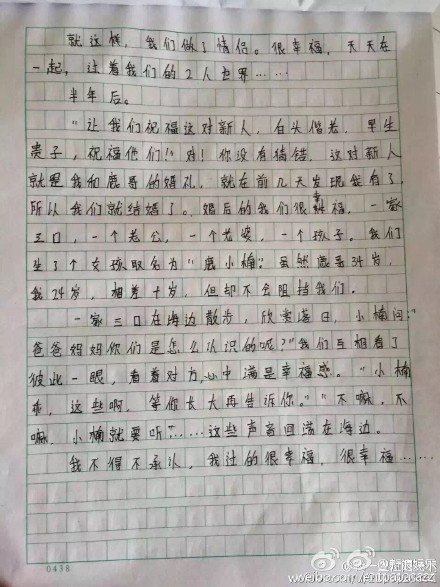 就这样，我们做了情侣。很幸福，天天在
一起，过着我们的2人世界……
半年后。
"让我们祝福这对新人，白头偕老，早生
贵子，祝福他们！"对！你没有搞错，这对新人
就是我和鹿哥的婚礼，就在前几天发现我有了，
所以我们就结婚了。婚后的我们很幸福，一家
三口，一个老公，一个老婆，一个孩子。我们
生了个女孩取名为"鹿小楠"虽然鹿哥34岁，
我24岁，相差十岁，但却不会阻挡我们。
一家三口在海边散步，欣赏落日，小楠问："
爸爸妈妈你们是怎么认识的呢？"我们互相看了
彼此一眼，看着对方，心中满是幸福感。"小楠
乖，这些啊，等你长大再告诉你。""不嘛，不
嘛，小楠就要听"……这些声音回荡在海边。
我不得不承认，我过的很幸福，很幸福……
0438